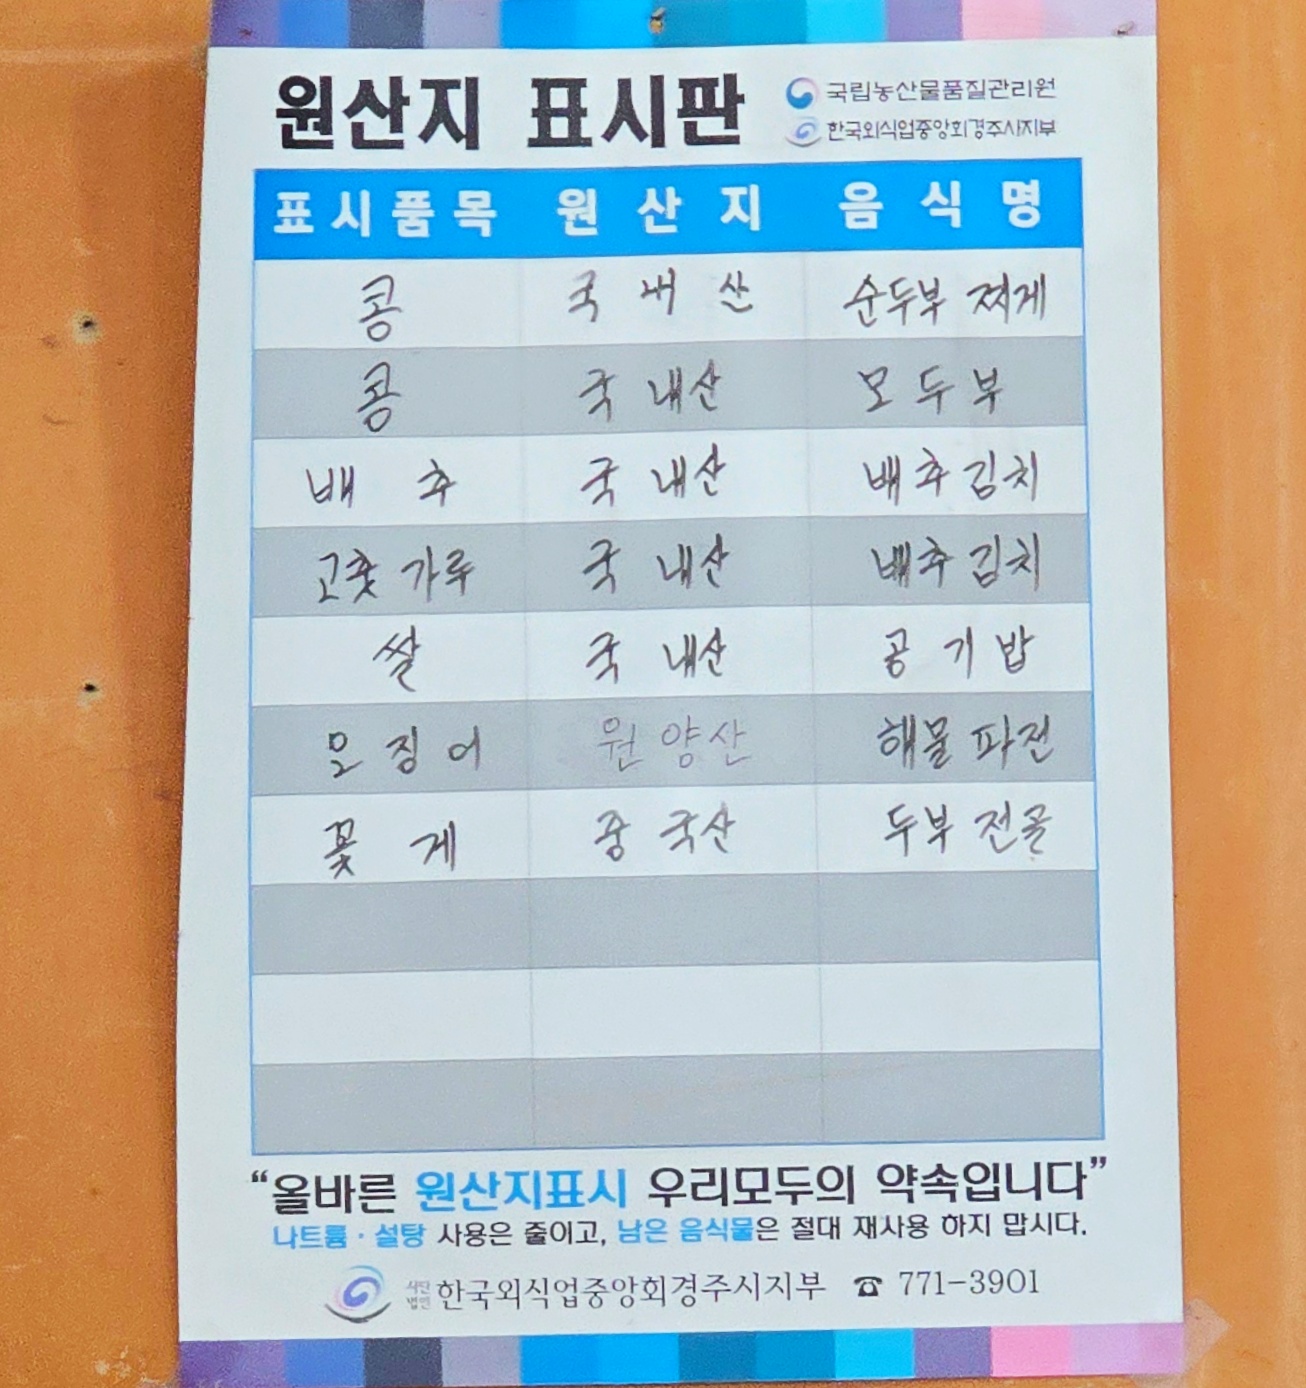 원산지 표시판
국립농산물품질관리원
한국외식업중앙회경주시지부
표시품목 원산지 음식명
콩 국내산 순두부 찌게
콩 국내산 모두부
배추 국내산 배추김치
고춧가루 국내산 배추김치
쌀 국내산 공기밥
오징어 원양산 해물파전
꽃게 중국산 두부전골
“올바른 원산지표시 우리모두의 약속입니다”
나트륨·설탕 사용은 줄이고, 남은 음식물은 절대 재사용 하지 맙시다.
사단법인 한국외식업중앙회경주시지부 ☎ 771-3901